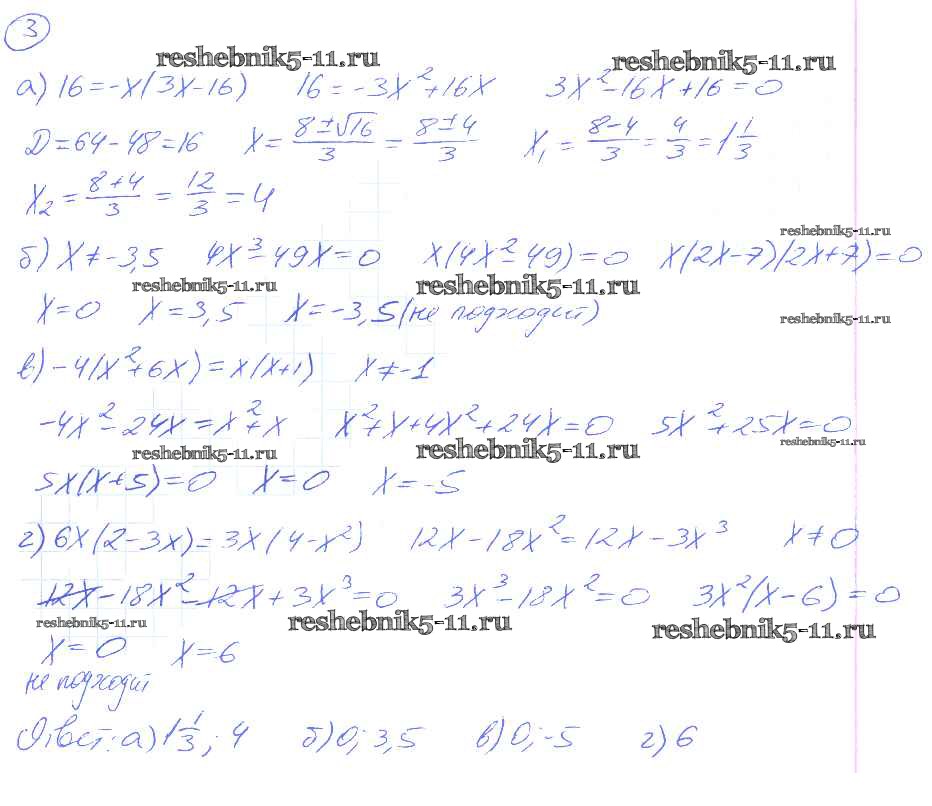 3
reshebnik5-11.ru reshebnik5-11.ru
а) 16=-x(3x-16) 16=-3x²+16x 3x²-16x+16=0
D=64-48=16 x=(8±√16)/3=(8±4)/3 x₁=(8-4)/3=4/3=1 1/3
x₂=(8+4)/3=12/3=4
reshebnik5-11.ru
б) x≠-3,5 4x³-49x=0 x(4x²-49)=0 x(2x-7)(2x+7)=0
reshebnik5-11.ru reshebnik5-11.ru
x=0 x=3,5 x=-3,5 (не подходит)
reshebnik5-11.ru
в) -4(x²+6x)=x(x+1) x≠-1
-4x²-24x=x²+x x²+x+4x²+24x=0 5x²+25x=0
reshebnik5-11.ru reshebnik5-11.ru reshebnik5-11.ru
5x(x+5)=0 x=0 x=-5
г) 6x(2-3x)=3x(4-x²) 12x-18x²=12x-3x³ x≠0
12x-18x²-12x+3x³=0 3x³-18x²=0 3x²(x-6)=0
reshebnik5-11.ru reshebnik5-11.ru reshebnik5-11.ru
x=0 x=6
не подходит
Ответ: а) 1 1/3; 4 б) 0; 3,5 в) 0; -5 г) 6